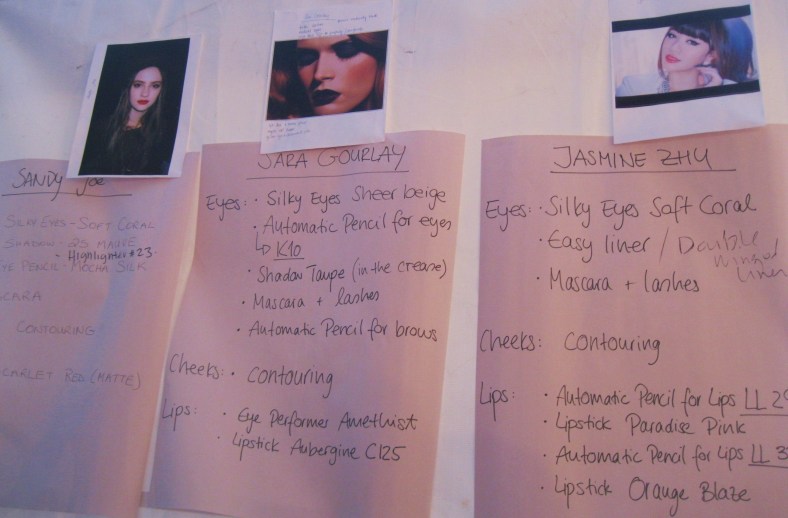 SANDY Joe
SILKY EYES - SOFT CORAL
SHADOW - 25 MAUVE
• Highlighter #23
EYE PENCIL - MOCHA SILK
SCARA
CONTOURING
CARLET RED (MATTE)
SARA GOURLAY
Eyes: • Silky Eyes Sheer beige
• Automatic Pencil for eyes
↳ K10
• Shadow Taupe (in the crease)
• Mascara + lashes
• Automatic Pencil for brows
Cheeks: • Contouring
Lips: • Eye Performer Amethist
• Lipstick Aubergine C125
JASMINE ZHU
Eyes: • Silky Eyes Soft Coral
• Easy liner / Double winged liner
• Mascara + lashes
Cheeks: Contouring
Lips: • Automatic Pencil for Lips LL 29
• Lipstick Paradise Pink
• Automatic Pencil for Lips LL 3
• Lipstick Orange Blaze